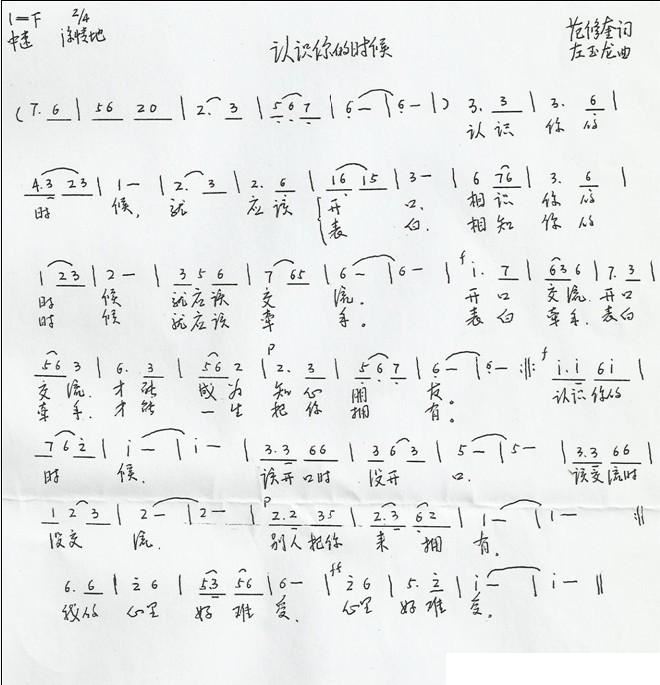 1=F 2/4
中速 深情地
认识你的时候
范修奎词
左玉龙曲
(7. 6 | 56 20 | 2. 3 | 567 | 6 – | 6 – |) 3. 3 | 3. 6 |
认识 你的
4.3 23 | 1 – | 2. 3 | 2. 6 | 16 15 | 3 – | 6 76 | 3. 6 |
时 候, 就 应该 开 口. 相识 你的
表 白. 相知 你的
1 23 | 2 – | 3 5 6 | 7 65 | 6 – | 6 – | f i. 7 | 636 | 7. 3 |
时 候 就应该 交 流. 开口 交流. 开口
时 候 就应该 牵 手. 表白 牵手. 表白
563 | 6. 3 | 562 | p 2. 3 | 567 | 6 – | 6 – :‖: f i.i 6i |
交流. 才能 成为 知心 朋 友. 认识你的
牵手. 才能 一生 把你 拥 有.
762 | i – | i – | 3.3 66 | 363 | 5 – | 5 – | 3.3 66 |
时 候. 该开口时 没开 口. 该交流时
123 | 2 – | 2 – | p 2.2 35 | 2.3 62 | 1 – | 1 – :‖
没交 流. 别人把你 来 拥 有.
6. 6 | 2 6 | 53 56 | 6 – | ff 2 6 | 5. 2 | i – | i – ‖
我的 心里 好 难 受. 心里 好难 受.